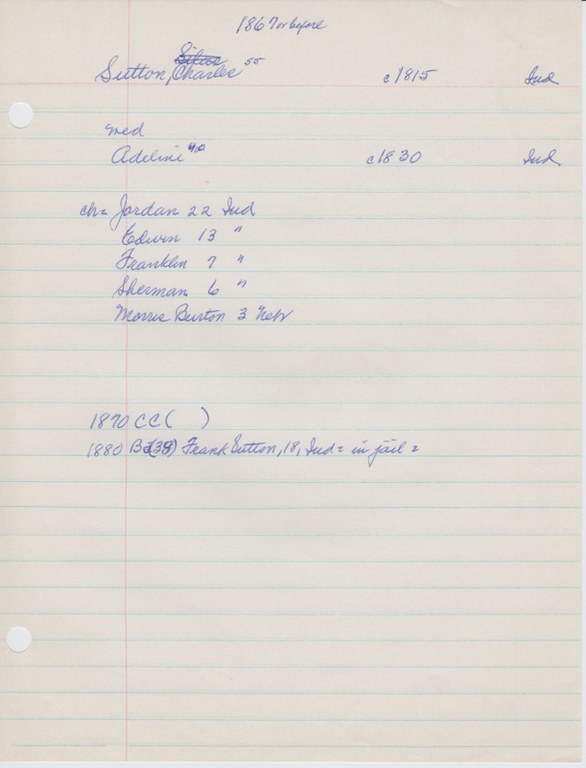 1867 or before
Silas
Sutton, Charles 55 c1815 Ind
med
Adeline 40 c1830 Ind
ch= Jordan 22 Ind
Edwin 13 "
Franklin 7 "
Sherman 6 "
Morris Burton 3 Nebr
1870 CC ( )
1880 B (39) Frank Sutton, 18, Ind = in jail =